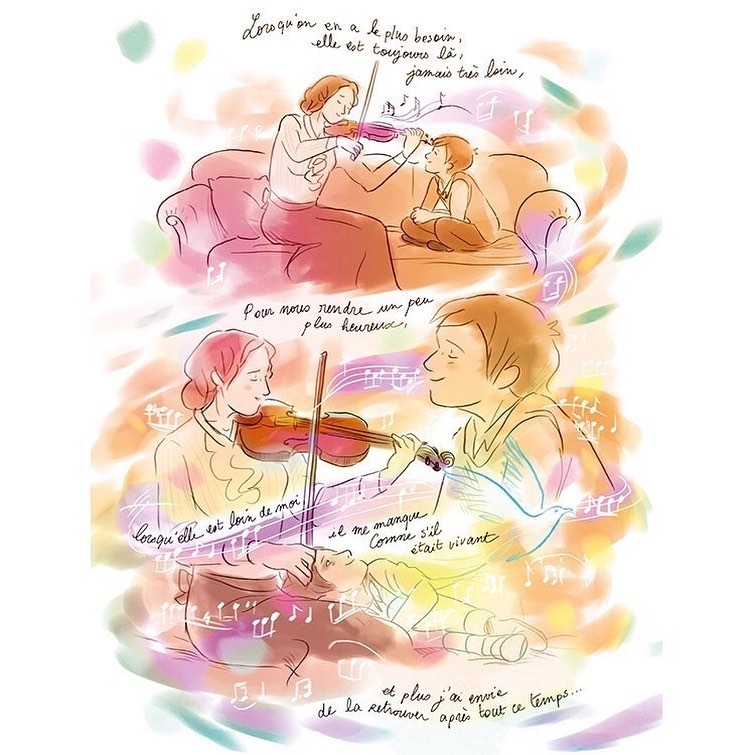 Lorsqu'on en a le plus besoin,
elle est toujours là,
jamais très loin,
Pour nous rendre un peu
plus heureux,
lorsqu'elle est loin de moi
il me manque
Comme s'il
était vivant
et plus j'ai envie
de la retrouver après tout ce temps...